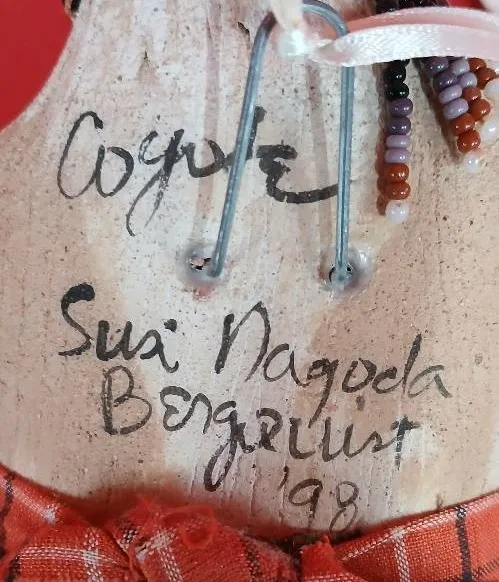 Coyote
Susi Nagoda
Bergquist
'98